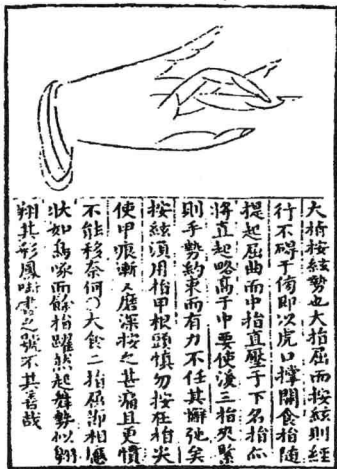 大指按絃勢也大指屈而按絃則經
行不碍于傍即以虎口撑開食指隨
提起屈曲而中指直壓于下名指亦
將直起略高于中要使後三指夾緊
則手勢約束而有力不任其懈弛矣
按絃須用指甲根頭慎勿按在指尖
使甲痕漸入磨深按之甚痛且更慣
不能移奈何〇大食二指屈湾相應
狀如鳥啄而餘指躍然起舞勢似翱
翔其形鳳啣書之號不其善哉